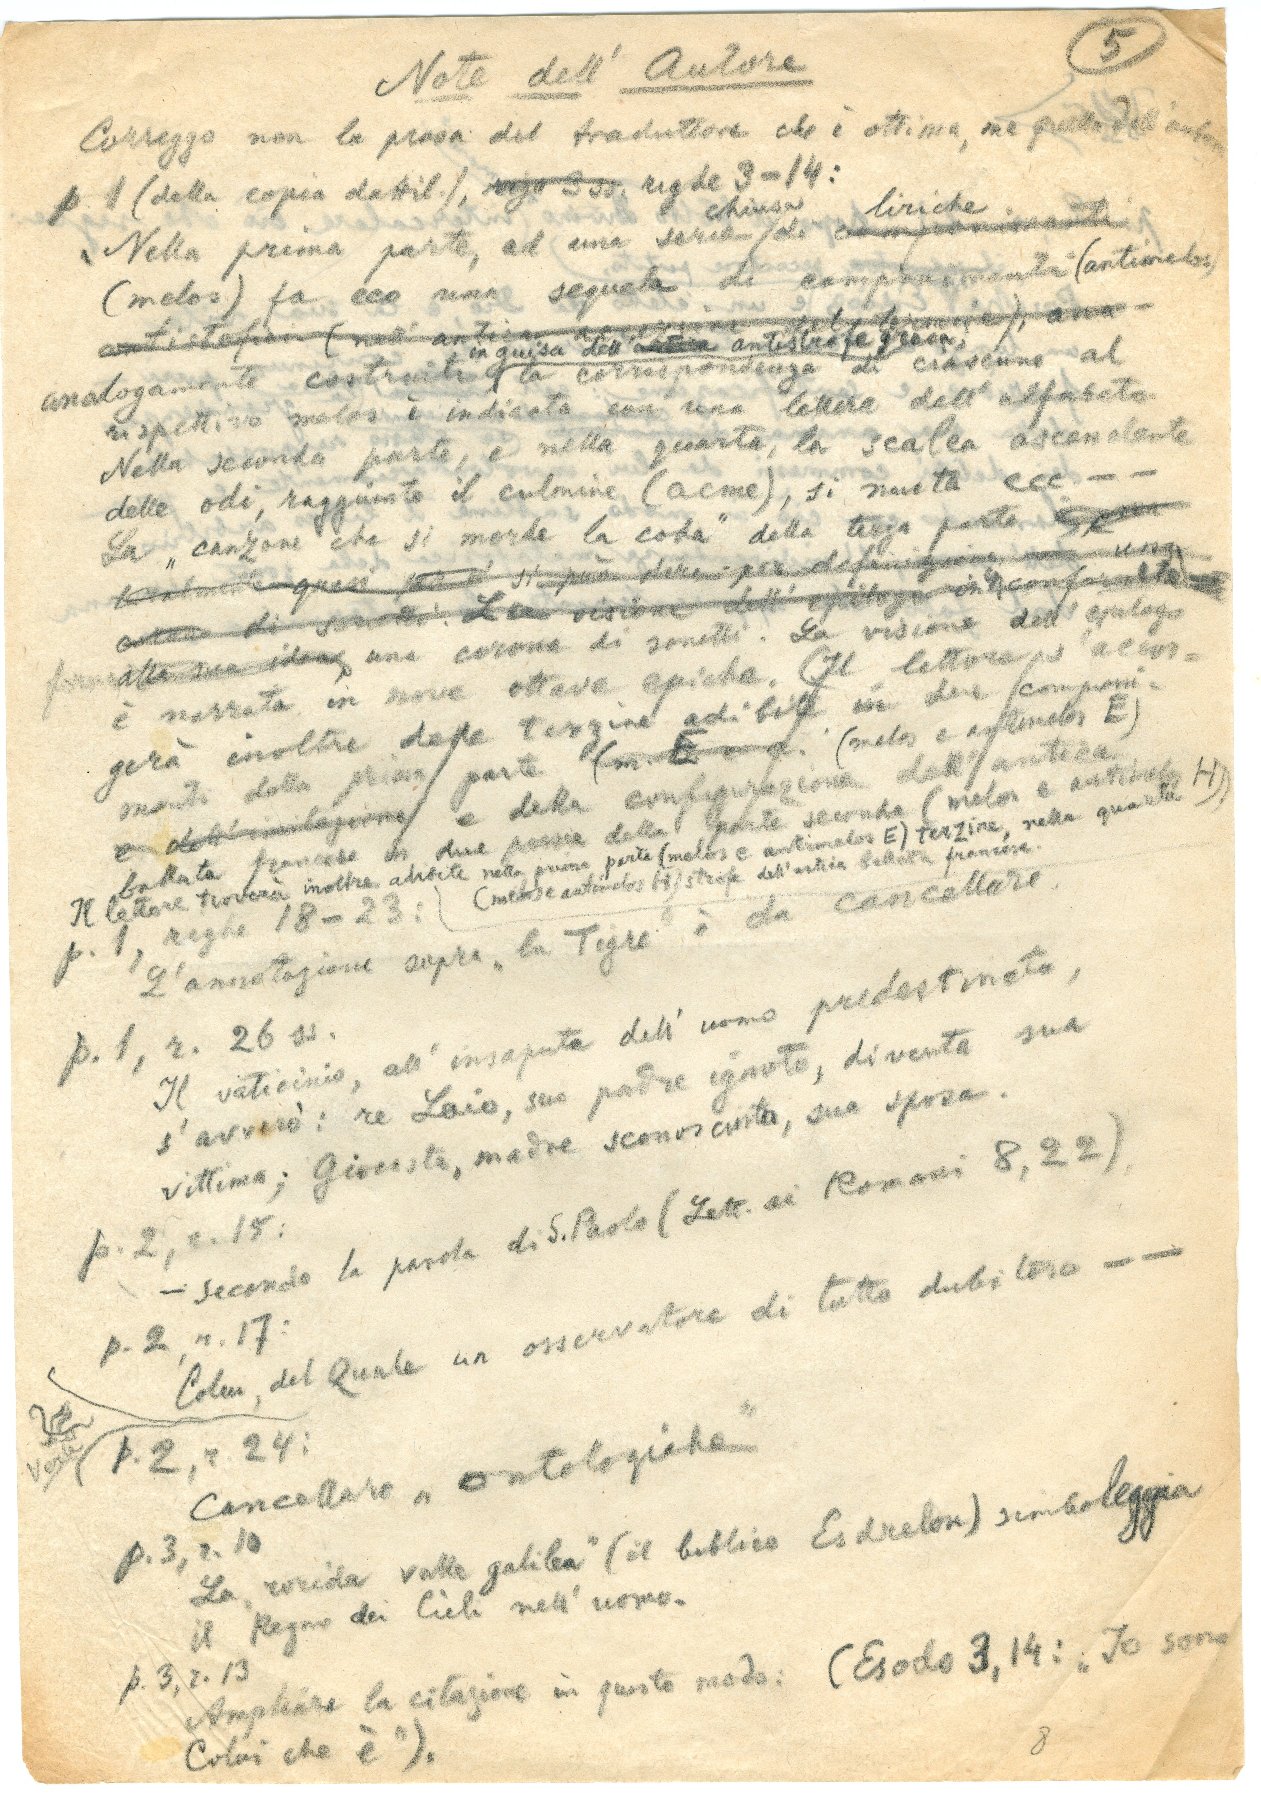 5
Note dell' Autore
Correggo non la prosa del traduttore che è ottima, ma quella dell'autore
p. 1 (della copia dattil.), righe 3 ss. righe 3-14:
chiusa liriche
Nella prima parte, ad una serie di componimenti
(melos) fa eco una seguela di componimenti (antimelos)
antistrofici (nell'antica del termine), ana-
in guisa dell' antistrofe greca;
analogamente costruiti la corrispondenza di ciascuno al
rispettivo melos è indicata con una lettera dell'alfabeto.
Nella seconda parte, e nella quarta, la scalea ascendente
delle odi, raggiunto il culmine (acme), si muta ecc – –
La „canzone che si morde la coda" della terza parte è
realmente quasi si può dire per definizione una
di sonetti. La visione dell'epilogo in conformità
forma alla sua idea, una corona di sonetti. La visione dell'epilogo
è narrata in nove ottave epiche. (Il lettore s'accor-
gerà inoltre delle terzine adibite in due componi-
menti della prima parte (m. E e a. (melos e antimelos E)
e dell'imitazione e della configurazione dell'antica
ballata francese in due poesie della parte seconda (melos e antimelos H).
Il lettore troverà inoltre adibite nella prima parte (melos e antimelos E) terzine, nella quarta
(melos e antimelos H) strofe dell'antica ballata francese.
p. 1, righe 18-23:
L'annotazione sopra „la Tigre" è da cancellare.
p. 1, r. 26 ss.
Il vaticinio, all'insaputa dell'uomo predestinato,
s'avverò: re Laio, suo padre ignoto, diventa sua
vittima; Giocasta, madre sconosciuta, sua sposa.
p. 2, r. 15:
– secondo la parola di S. Paolo (Lett. ai Romani 8, 22)
p. 2, r. 17:
Colui, del Quale un osservatore di tutto dubitoso – –
p. 2, r. 24:
Cancellare „ontologiche"
p. 3, r. 10
La „rorida valle galilea" (il biblico Esdrelon) simboleggia
il Regno dei Cieli nell'uomo.
p. 3, r. 13
Ampliare la citazione in questo modo: (Esodo 3, 14: „Io sono
Colui che è").
8